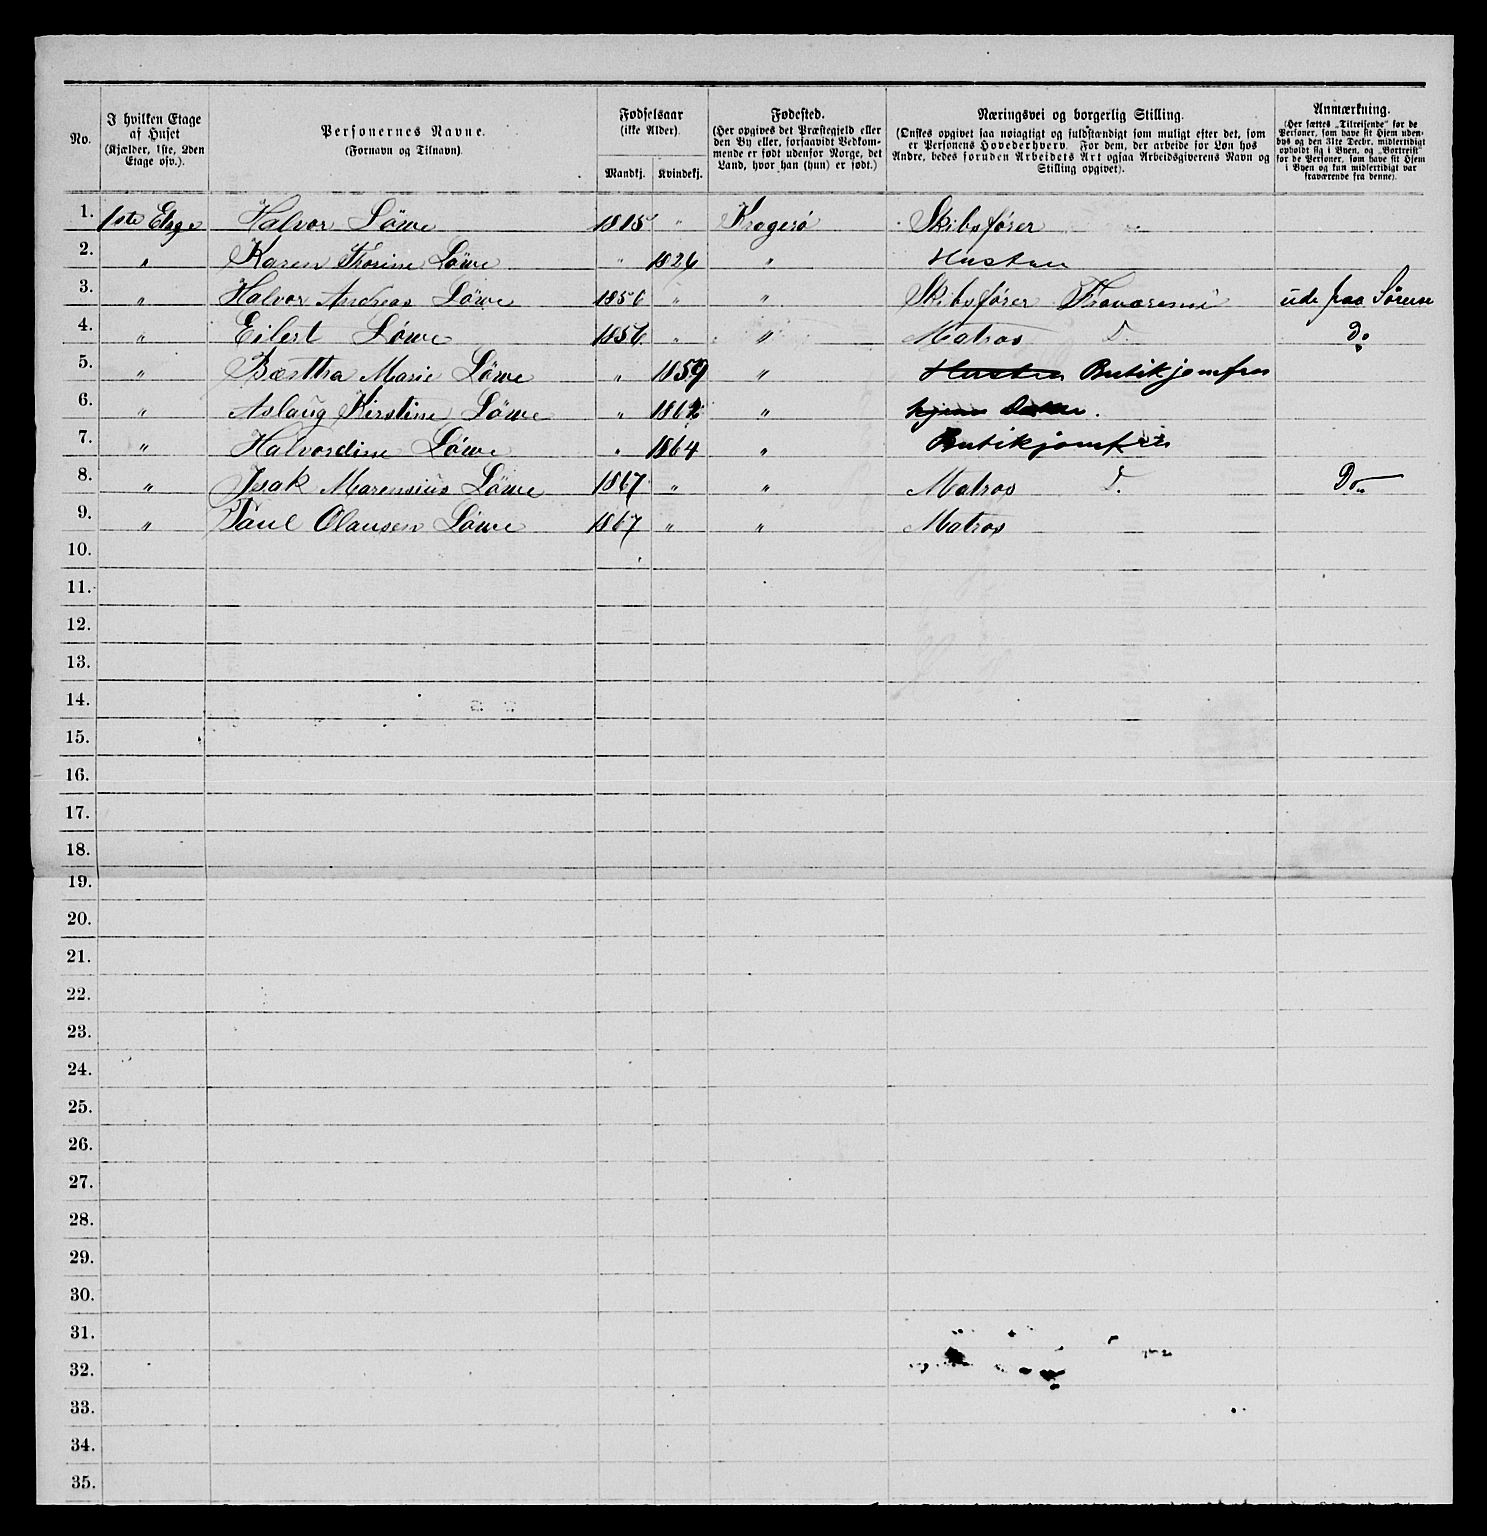 No.
I hvilken Etage
af Huset
(Kjælder, 1ste, 2den
Etage osv.).
Personernes Navne.
(Fornavn og Tilnavn).
Fødselsaar
(ikke Alder).
Mandkj. Kvindekj.
Fødested.
(Her opgives det Præstegjeld eller
den By eller, forsaavidt Vedkom-
mende er født udenfor Norge, det
Land, hvor han (hun) er født.)
Næringsvei og borgerlig Stilling.
(Ønskes opgivet saa nøiagtigt og fuldstændigt som muligt efter det, som
er Personens Hovederhverv. For dem, der arbeide for Løn hos
Andre, bedes foruden Arbeidets Art ogsaa Arbeidsgiverens Navn og
Stilling opgivet).
Anmærkning.
(Her sættes „Tilreisende“ for de
Personer, som have sit Hjem uden-
bys og den 31te Decbr. midlertidigt
opholdt sig i Byen, og „Bortreist“
for de Personer, som have sit Hjem
i Byen og kun midlertidigt var
fraværende fra denne).
1. 1ste Etage Halvor Löwe 1815 " Kragerø Skibsfører
2. " Karen Thorine Löwe " 1826 " Hustru
3. " Halvor Andreas Löwe 1850 " " Skibsfører ude paa
4. " Eilert Löwe 1856 " " Matros D. Do
5. " Bærtha Marie Löwe " 1859 " Hustru Butikjomfru
6. " Aslaug Kirstine Löwe " 1862 "
7. " Halvordine Löwe " 1864 " Butikjomfru
8. " Isak Marensius Löwe 1867 " " Matros D. Do
9. " Paul Olausen Löwe 1867 " " Matros
10.
11.
12.
13.
14.
15.
16.
17.
18.
19.
20.
21.
22.
23.
24.
25.
26.
27.
28.
29.
30.
31.
32.
33.
34.
35.